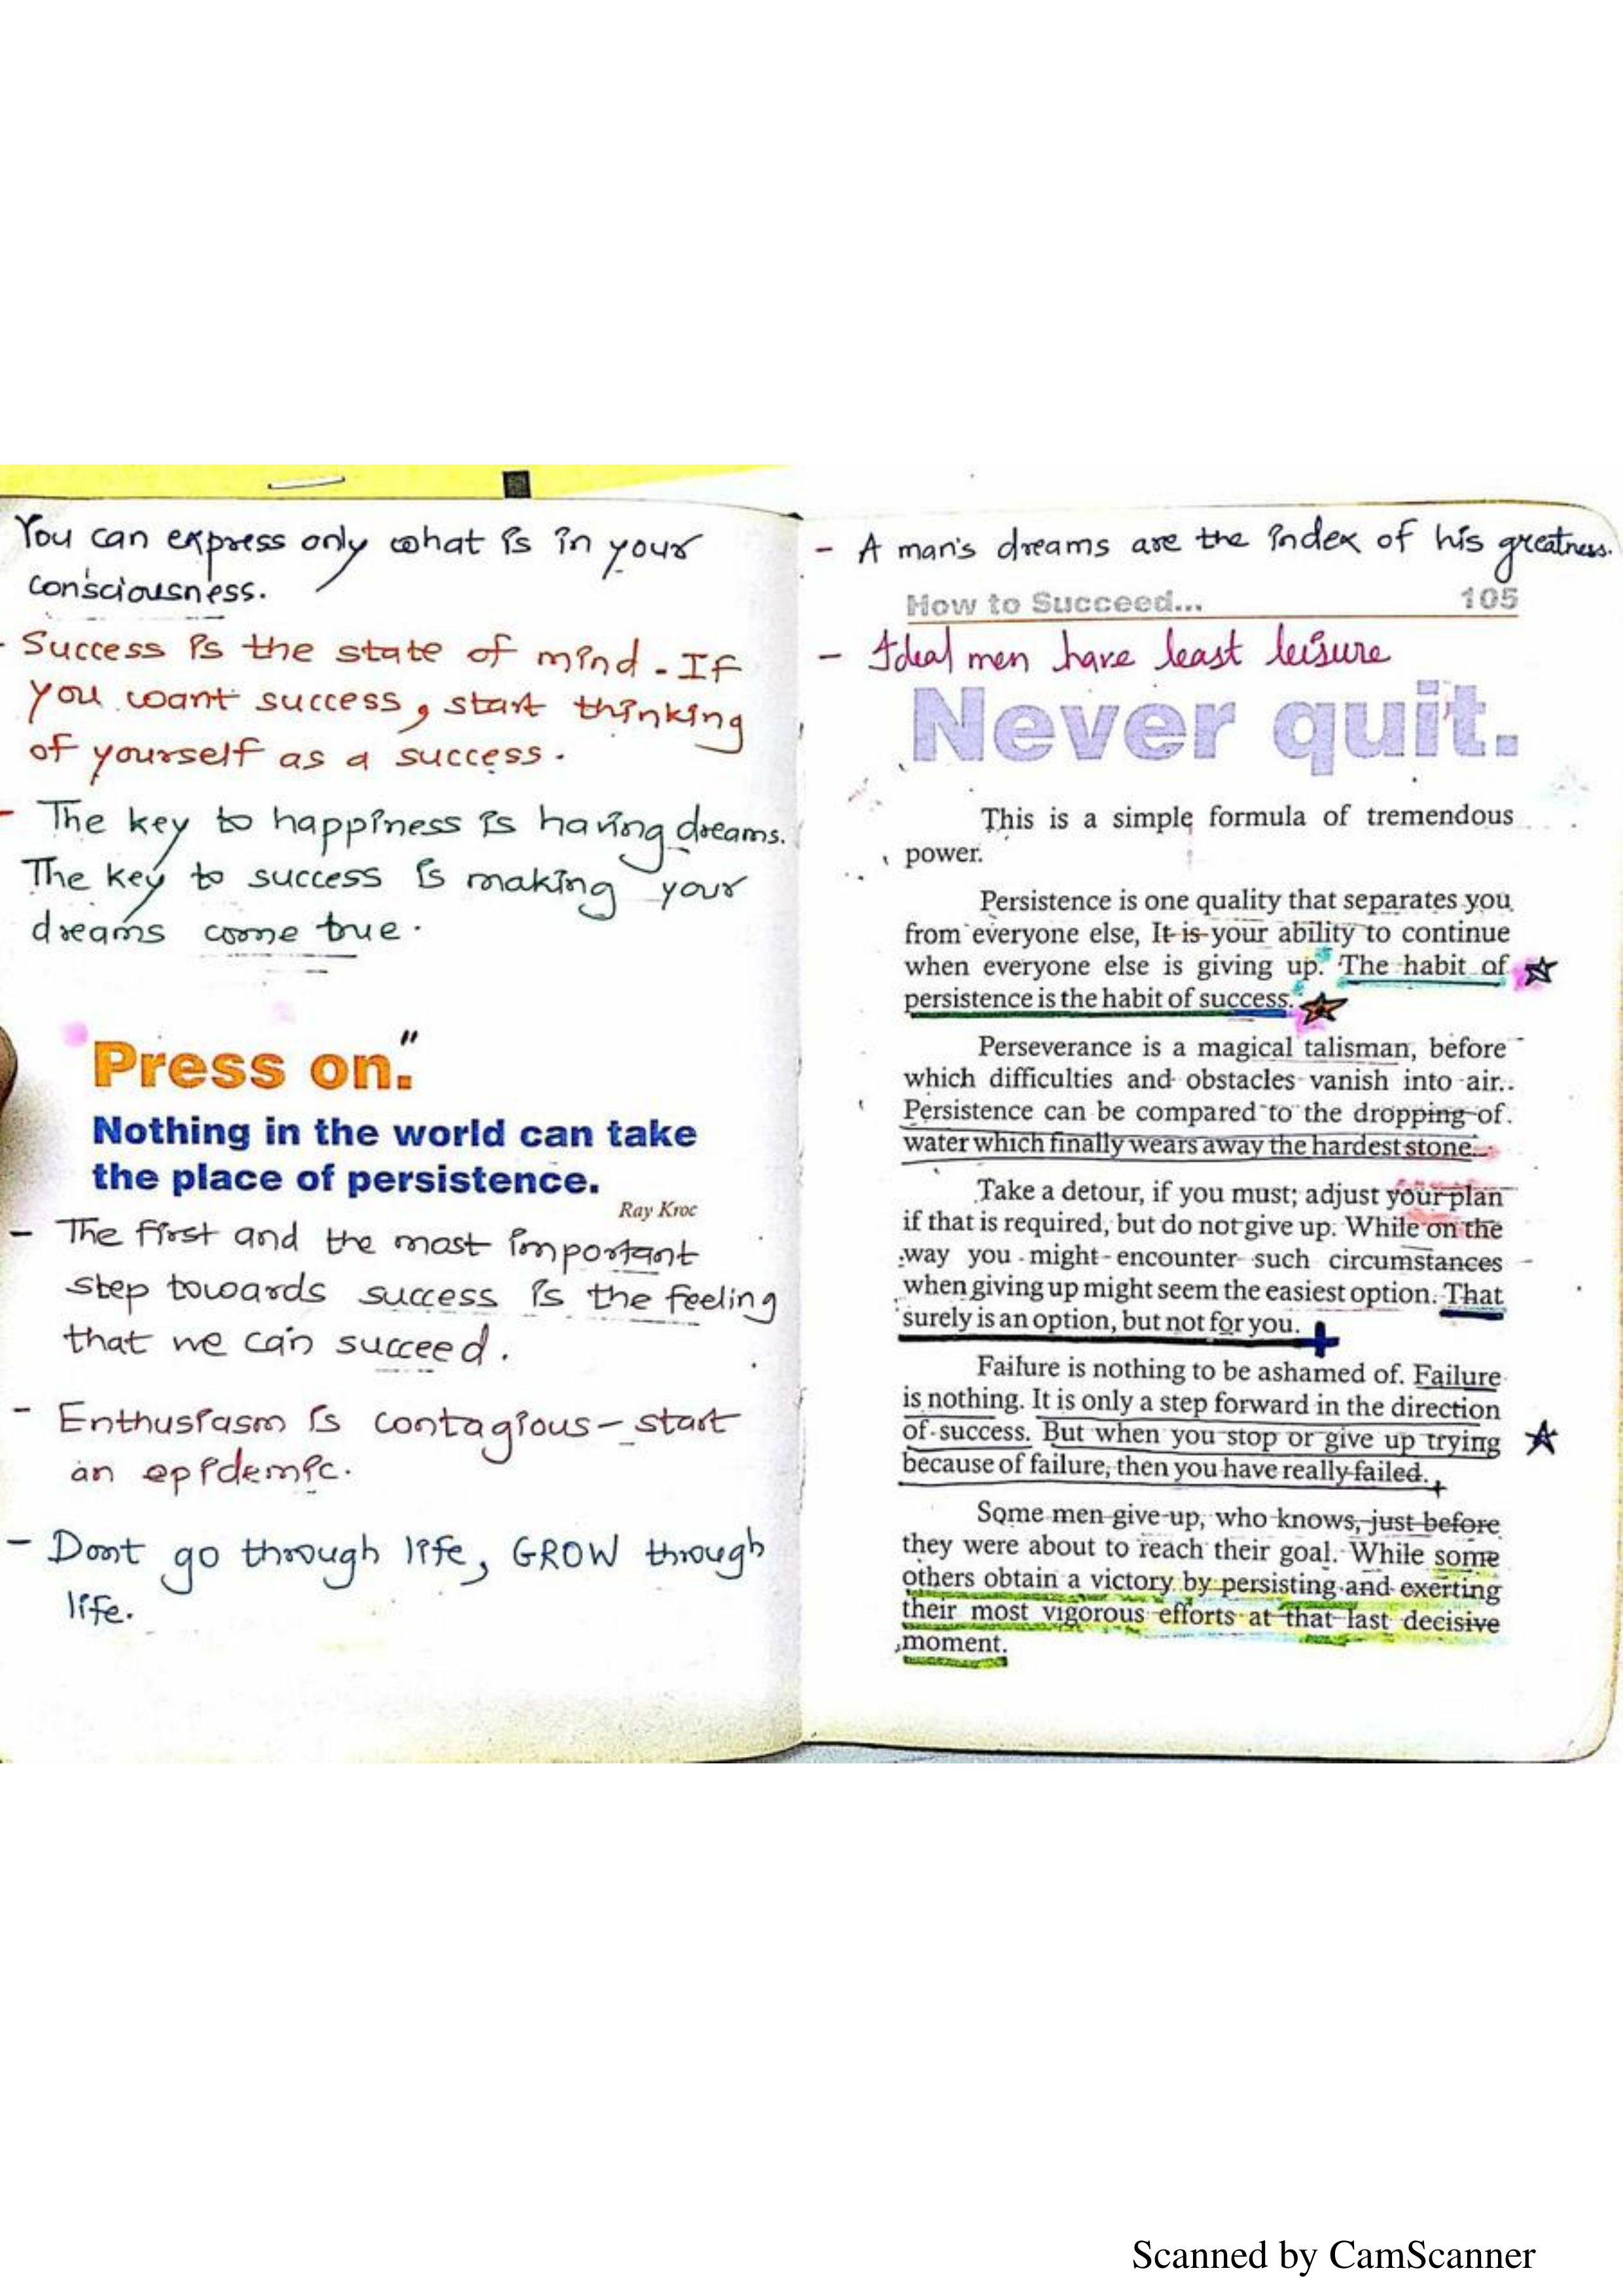 You can express only what is in your
consciousness.
- Success is the state of mind - If
you want success, start thinking
of yourself as a success.
- The key to happiness is having dreams.
The key to success is making your
dreams come true.
Press on."
Nothing in the world can take
the place of persistence.
Ray Kroc
- The first and the most important
step towards success is the feeling
that we can succeed.
- Enthusiasm is contagious - start
an epidemic.
- Dont go through life, GROW through
life.
- A man's dreams are the index of his greatness.
How to Succeed... 105
- Ideal men have least leisure
Never quit.
This is a simple formula of tremendous
power.
Persistence is one quality that separates you
from everyone else, It is your ability to continue
when everyone else is giving up. The habit of
persistence is the habit of success.
Perseverance is a magical talisman, before
which difficulties and obstacles vanish into air..
Persistence can be compared to the dropping of
water which finally wears away the hardest stone.
Take a detour, if you must; adjust your plan
if that is required, but do not give up. While on the
way you might encounter such circumstances
when giving up might seem the easiest option. That
surely is an option, but not for you.
Failure is nothing to be ashamed of. Failure
is nothing. It is only a step forward in the direction
of success. But when you stop or give up trying
because of failure, then you have really failed.
Some men give up, who knows, just before
they were about to reach their goal. While some
others obtain a victory by persisting and exerting
their most vigorous efforts at that last decisive
moment.
Scanned by CamScanner